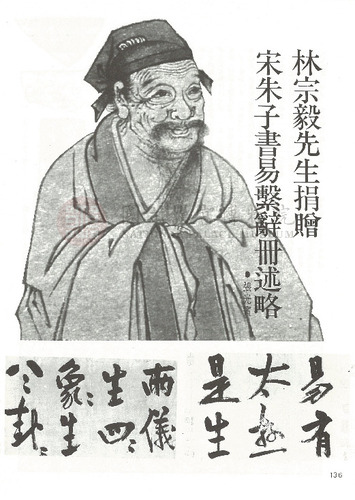 林宗毅先生捐贈
宋朱子書易繫辭冊述略
易有
太極
是生
兩儀
生四〻
象〻生
八卦〻
136